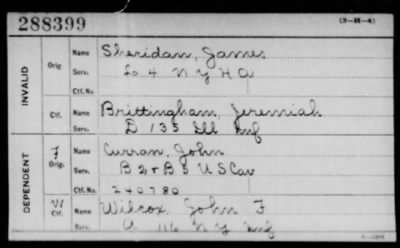 288399
(3-M-4)
INVALID
Orig
Name Sheridan, James
Serv. Co. 4 N Y H A
Ctf. No.
Ctf.
Name Brittingham, Jeremiah
Serv. D 135 Ill Inf
DEPENDENT
F
Orig.
Name Curran, John
Serv. B 2 & B 5 U S Cav
Ctf. No. 240780
W
Ctf.
Name Wilcox, John F
Serv. A 116 N Y Inf